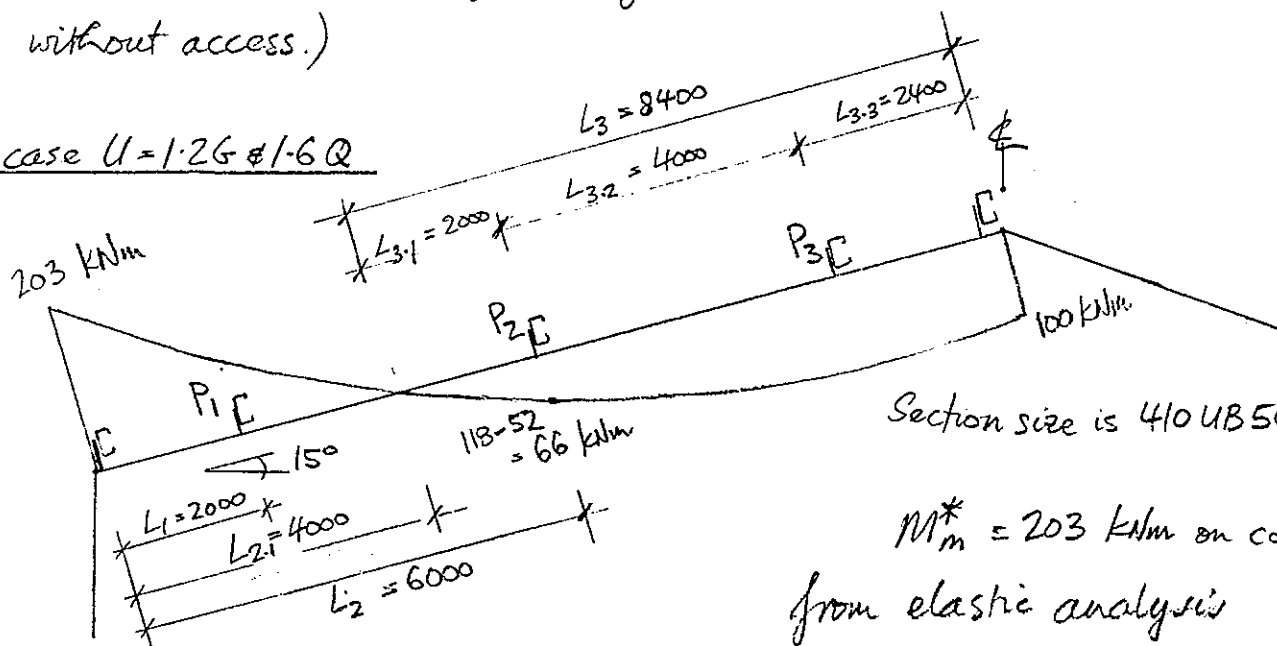 without access.)
case U = 1.2G & 1.6Q
L3 = 8400
L3.3 = 2400
L3.2 = 4000
L3.1 = 2000
203 kNm
P3
P2
P1
100 kNm
118-52
= 66 kNm
15°
L1 = 2000
L2.1 = 4000
L2 = 6000
Section size is 410 UB 5
M*m = 203 kNm on co
from elastic analysis